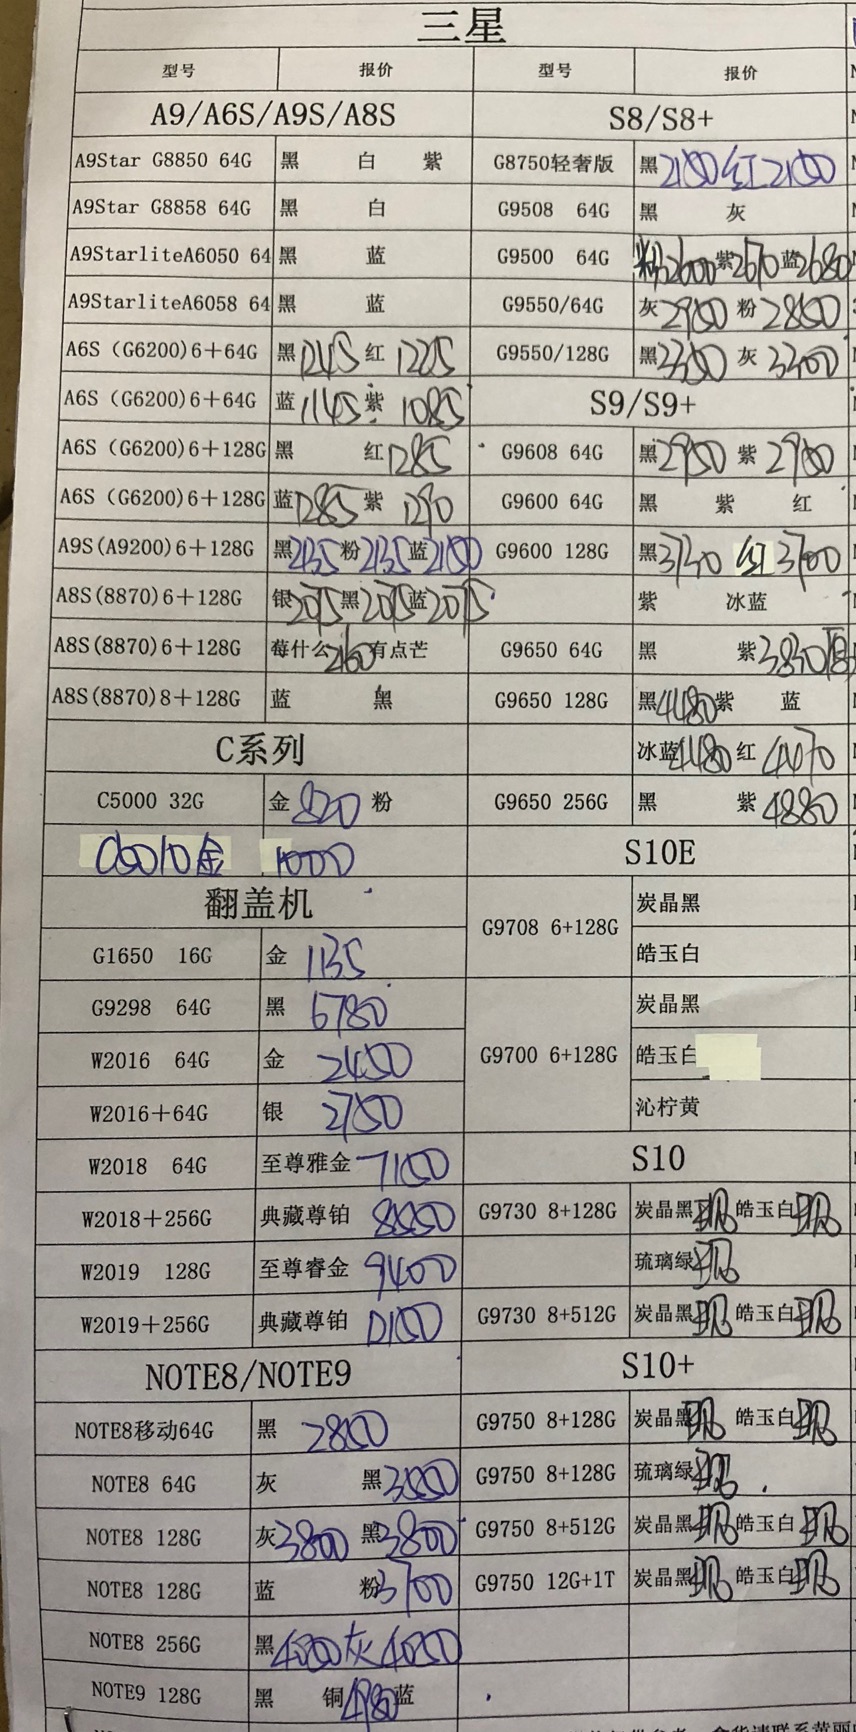 三星
型号 报价 型号 报价
A9/A6S/A9S/A8S S8/S8+
A9Star G8850 64G 黑 白 紫 G8750轻奢版 黑2150 红2150
A9Star G8858 64G 黑 白 G9508 64G 黑 灰
A9StarliteA6050 64 黑 蓝 G9500 64G 粉2600紫2670蓝2680
A9StarliteA6058 64 黑 蓝 G9550/64G 灰2950 粉2850
A6S (G6200)6+64G 黑1245 红1225 G9550/128G 黑3350 灰3300
A6S (G6200)6+64G 蓝1145 紫1085 S9/S9+
A6S (G6200)6+128G 黑 红1285 G9608 64G 黑2950 紫2950
A6S (G6200)6+128G 蓝1285 紫1290 G9600 64G 黑 紫 红
A9S(A9200)6+128G 黑2135粉2135蓝2150 G9600 128G 黑3730 红3700
A8S(8870)6+128G 银2075黑2075蓝2075 紫 冰蓝
A8S(8870)6+128G 莓什么2160有点芒 G9650 64G 黑 紫3830
A8S(8870)8+128G 蓝 黑 G9650 128G 黑4480紫 蓝
C系列 冰蓝4480红4470
C5000 32G 金820 粉 G9650 256G 黑 紫4880
C5010金 1000 S10E
翻盖机 G9708 6+128G 炭晶黑
G1650 16G 金 1135 皓玉白
G9298 64G 黑 6780 炭晶黑
W2016 64G 金 2450 G9700 6+128G 皓玉白
W2016+64G 银 2750 沁柠黄
W2018 64G 至尊雅金 7150 S10
W2018+256G 典藏尊铂 8850 G9730 8+128G 炭晶黑现 皓玉白现
W2019 128G 至尊睿金 9400 琉璃绿现
W2019+256G 典藏尊铂 G9730 8+512G 炭晶黑现 皓玉白现
NOTE8/NOTE9 S10+
NOTE8移动64G 黑 2850 G9750 8+128G 炭晶黑现 皓玉白现
NOTE8 64G 灰 黑 G9750 8+128G 琉璃绿现
NOTE8 128G 灰3800 黑3800 G9750 8+512G 炭晶黑现 皓玉白现
NOTE8 128G 蓝 粉3700 G9750 12G+1T 炭晶黑现 皓玉白现
NOTE8 256G 黑4050灰4050
NOTE9 128G 黑 铜4980蓝